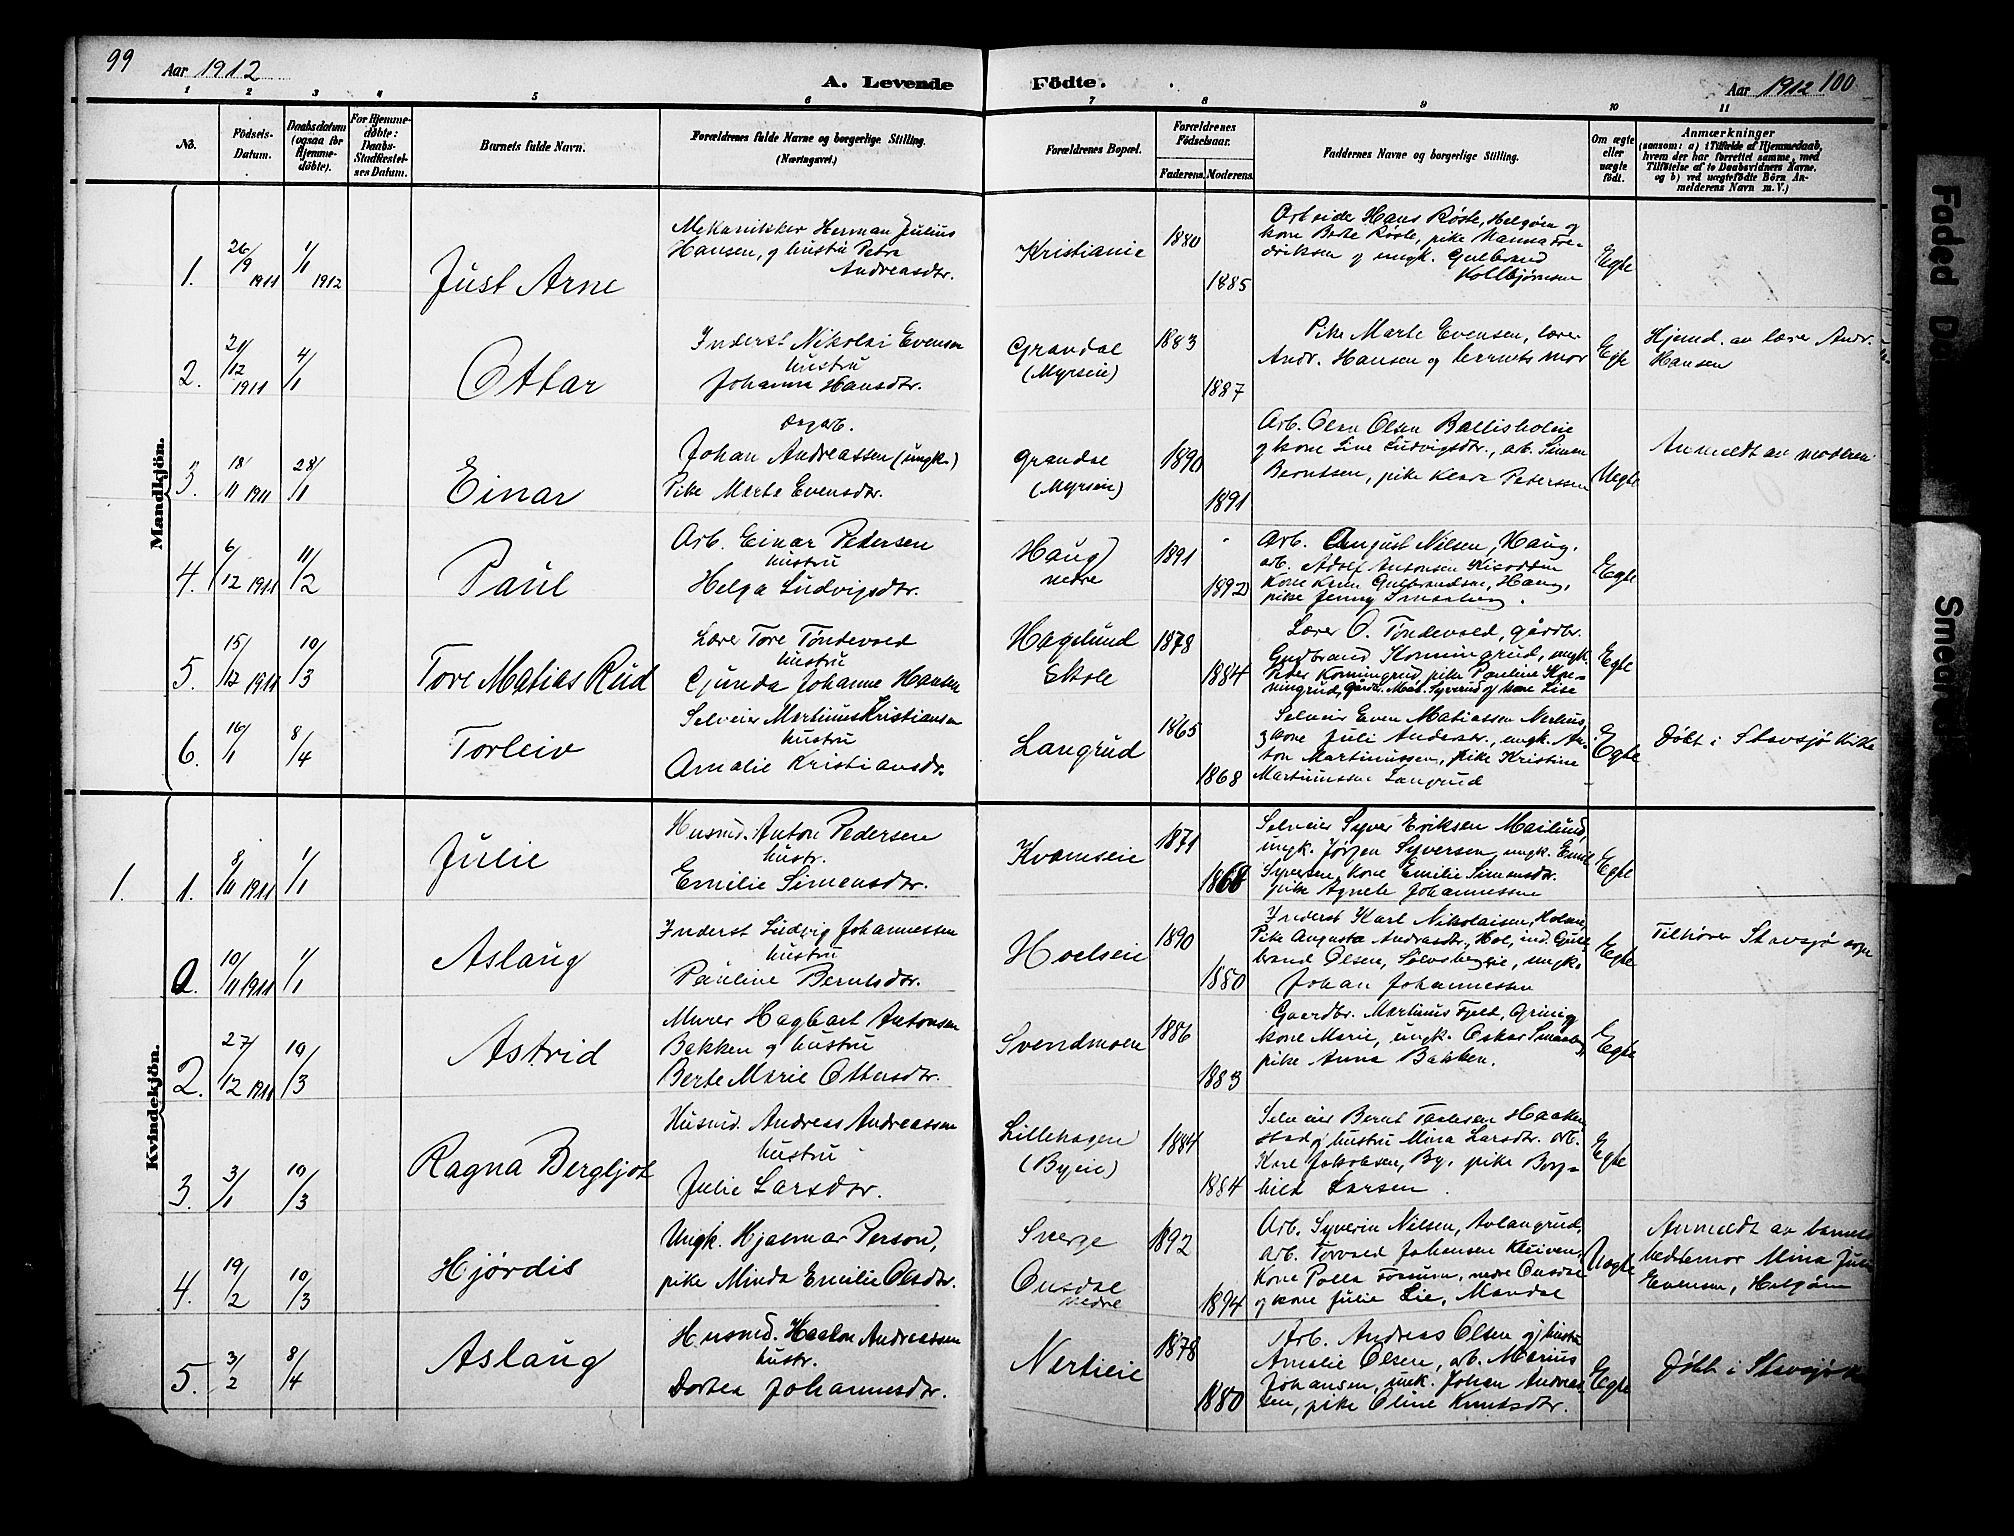 99
Aar 1912
A. Levende
Födte.
Aar 1912
100
1 2 3 4 5 6 7 8 9 10 11
No.
Födsels-
Datum.
Daabsdatum
(ogsaa for
Hjemme-
döbte).
For Hjemme-
döbte:
Daabs-
Stadfæstel-
ses Datum.
Barnets fulde Navn.
Forældrenes fulde Navne og borgerlige Stilling.
(Næringsvei.)
Forældrenes Bopæl.
Forældrenes
Födselsaar.
Faderens.
Moderens.
Faddernes Navne og borgerlige Stilling.
Om ægte
eller
uægte
födt.
Anmærkninger
(saasom: a) i Tilfælde af Hjemmedaab,
hvem der har forrettet samme, med
Tilföielse af to Daabsvidners Navne,
og b) ved uægtefödte Börn An-
melderens Navn m. V.)
Mandkjön.
1. 26/9 1911 1/1 1912 Just Arne
Mekanikker Herman Julius
Hansen, og hustru Petra
Andreasdtr.
Kristiania 1880 1885
Arbeider Hans Røste, Helgøen og
kone Berte Røste, pike Hanna Fre-
driksen og ungk. Gulbrand
Kolbjørnsen
Egte
2. 21/12 1911 4/1 Ottar
Inderst Nikolai Evensen
hustru
Johanne Hansdtr.
Grandal
(Myrseie)
1883 1887
Pike Marte Evensen, lærer
Andr. Hansen og barnets mor
Egte
Hjemd. av lærer Andr.
Hansen
3. 18/11 1911 28/1 Einar
Dagarb.
Johan Andreassen (ungk.)
Pike Marte Evensdtr.
Grandal
(Myrseie)
1890 1891
Arb. Olen Olsen Ballisholeie
og kone Line Ludvigsdtr., arb. Simen
Berntsen, pike Klara Peterssen
Uegte
Anmeldt av moderen
4. 6/12 1911 11/2 Paul
Arb. Einar Pedersen
hustru
Helga Ludvigsdtr.
Haug
nedre
1891 1892
Arb. August Nilsen, Haug,
arb. Adolf Antonsen
Kone Karen Gulbrandsen, Haug,
pike Jenny Smaaberg.
Egte
5. 15/12 1911 10/3 Tore Matias Rud
Lærer Tore Tøndevold
hustru
Gunda Johanne Hansen
Hagelund
Skole
1878 1884
Lærer O. Tøndevold, gårdbr.
Gudbrand Konningrud, ungk.
Peter Konningrud, pike Pauline Kon-
ningrud, gårdbr. Mat. Syverud og kone Lise
Egte
6. 16/1 8/4 Torleiv
Selveier Martinus Kristiansen
hustru
Amalie Kristiansdtr.
Langrud
1865 1868
Selveier Even Matiassen Nerlien,
kone Juli Andersdtr., ungk. An-
ton Martinussen, pike Kristine
Martinussen Langrud
Egte
Døbt i Stavsjø Kirke
Kvindekjön.
1. 1. 8/11 1911 1/1 Julie
Husmd. Anton Pedersen
hustr.
Emilie Simensdtr.
Kvamseie
1871 1868
Selveier Syver Eriksen Mailund,
ungk. Jørgen Syversen, ungk. Emil
Syversen, Kone Emilie Simensdtr.
pike Agnete Johannessen
Egte
0. 10/11 1911 1/1 Aslaug
Inderst Ludvig Johannessen
hustru
Pauline Berntsdtr.
Hoelseie
1890 1880
Inderst Karl Nikolaisen, Holme,
Pike Augusta Andreasdtr., Hol, ind. Gul-
brand Olsen, Solvsbergeie, ungk.
Johan Johannessen
Egte
Tilhører Stavsjø sogn
2. 27/12 1911 10/3 Astrid
Murer Hagbart Antonsen
Bakken og hustru
Berte Marie Ottersdtr.
Svendmoen
1886 1883
Gaardbr. Martinius Fjeld, Gring,
kone Marie, ungk. Oskar Smaaberg,
pike Anna Bakken.
Egte
3. 3/1 10/3 Ragna Bergljot
Husmd. Andreas Andreassen
hustru
Julie Larsdtr.
Lillehagen
(Byeie)
1884 1884
Selveier Bernt Taalesen Haaken-
stad og hustru Mina Larsdtr. arb.
Kare Jakobsen, By, pike Borg-
hild Larsen.
Egte
4. 19/2 10/3 Hjørdis
Ungk. Hjalmar Person,
pike Minda Emilie Olsdtr.
Sverge
Onsdal
nedre
1892 1894
Arb. Syverin Nilsen, Avlangrud,
arb. Torvald Johansen Kleiven,
Kone Palla Fossum, nedre Onsdal
og kone Julie Lie, Mandal
Uegte
Anmeldt av barnets
bedstemor Mina Juli
Evensen, Helgøen
5. 3/2 8/4 Aslaug
Husmd. Haakon Andreassen
hustr.
Dortea Johannesdtr.
Nerlieie
1878 1880
Arb. Andreas Olsen og hustru
Amalie Olsen, arb. Marius
Johansen, ungk. Johan Andreas-
sen, pike Oline Knutsdtr.
Egte
Døbt i Stavsjø K
Faded D
Smeared